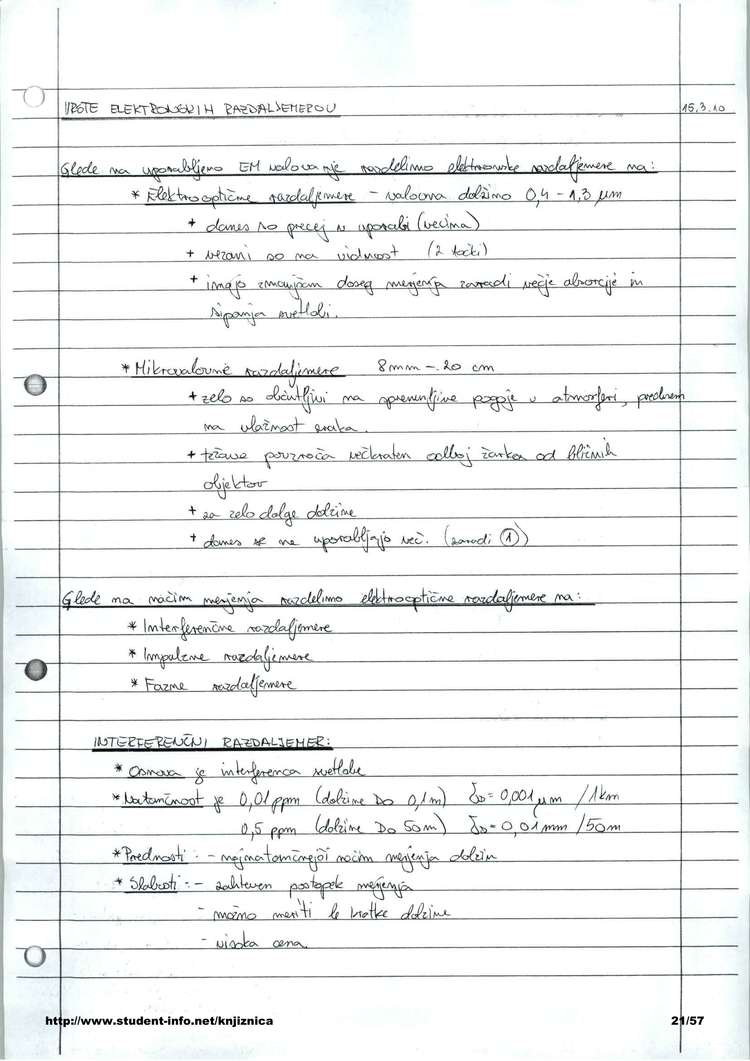 VRSTE ELEKTRONSKIH RAZDALJEMEROV 15.3.10
Glede na uporabljeno EM valovanje razdelimo elektronske razdaljemere na:
* Elektrooptične razdaljemere - valovna dolžino 0,4 - 1,3 μm
+ danes so precej v uporabi (večina)
+ vezani so na vidnost (2 točki)
+ imajo zmanjšan doseg merjenja zaradi večje absorcije in
sipanja svetlobi.
* Mikrovalovne razdaljemere 8mm - 20 cm
+ zelo so občutljivi na spremenljive pogoje v atmosferi, predvsem
na vlažnost zraka.
+ težave povzroča večkraten odboj žarka od bližnih
objektov
+ za zelo dolge dolžine
+ danes se ne uporabljajo več. (zaradi ①)
Glede na način merjenja razdelimo elektrooptične razdaljemere na:
* Interferenčne razdaljemere
* Impulzne razdaljemere
* Fazne razdaljemere
INTERFERENČNI RAZDALJEMER:
* Osnova je interferenca svetlobe
* Natančnost je 0,01 ppm (dolžine Do 0,1m) = 0,001 μm /1km
0,5 ppm (dolžine Do 50m) = 0,01mm /50m
* Prednosti: - najnatančnejši način merjenja dolžin
* Slabosti: - zahteven postopek merjenja
- možno meriti le kratke dolžine
- visoka cena.
http://www.student-info.net/knjiznica 21/57